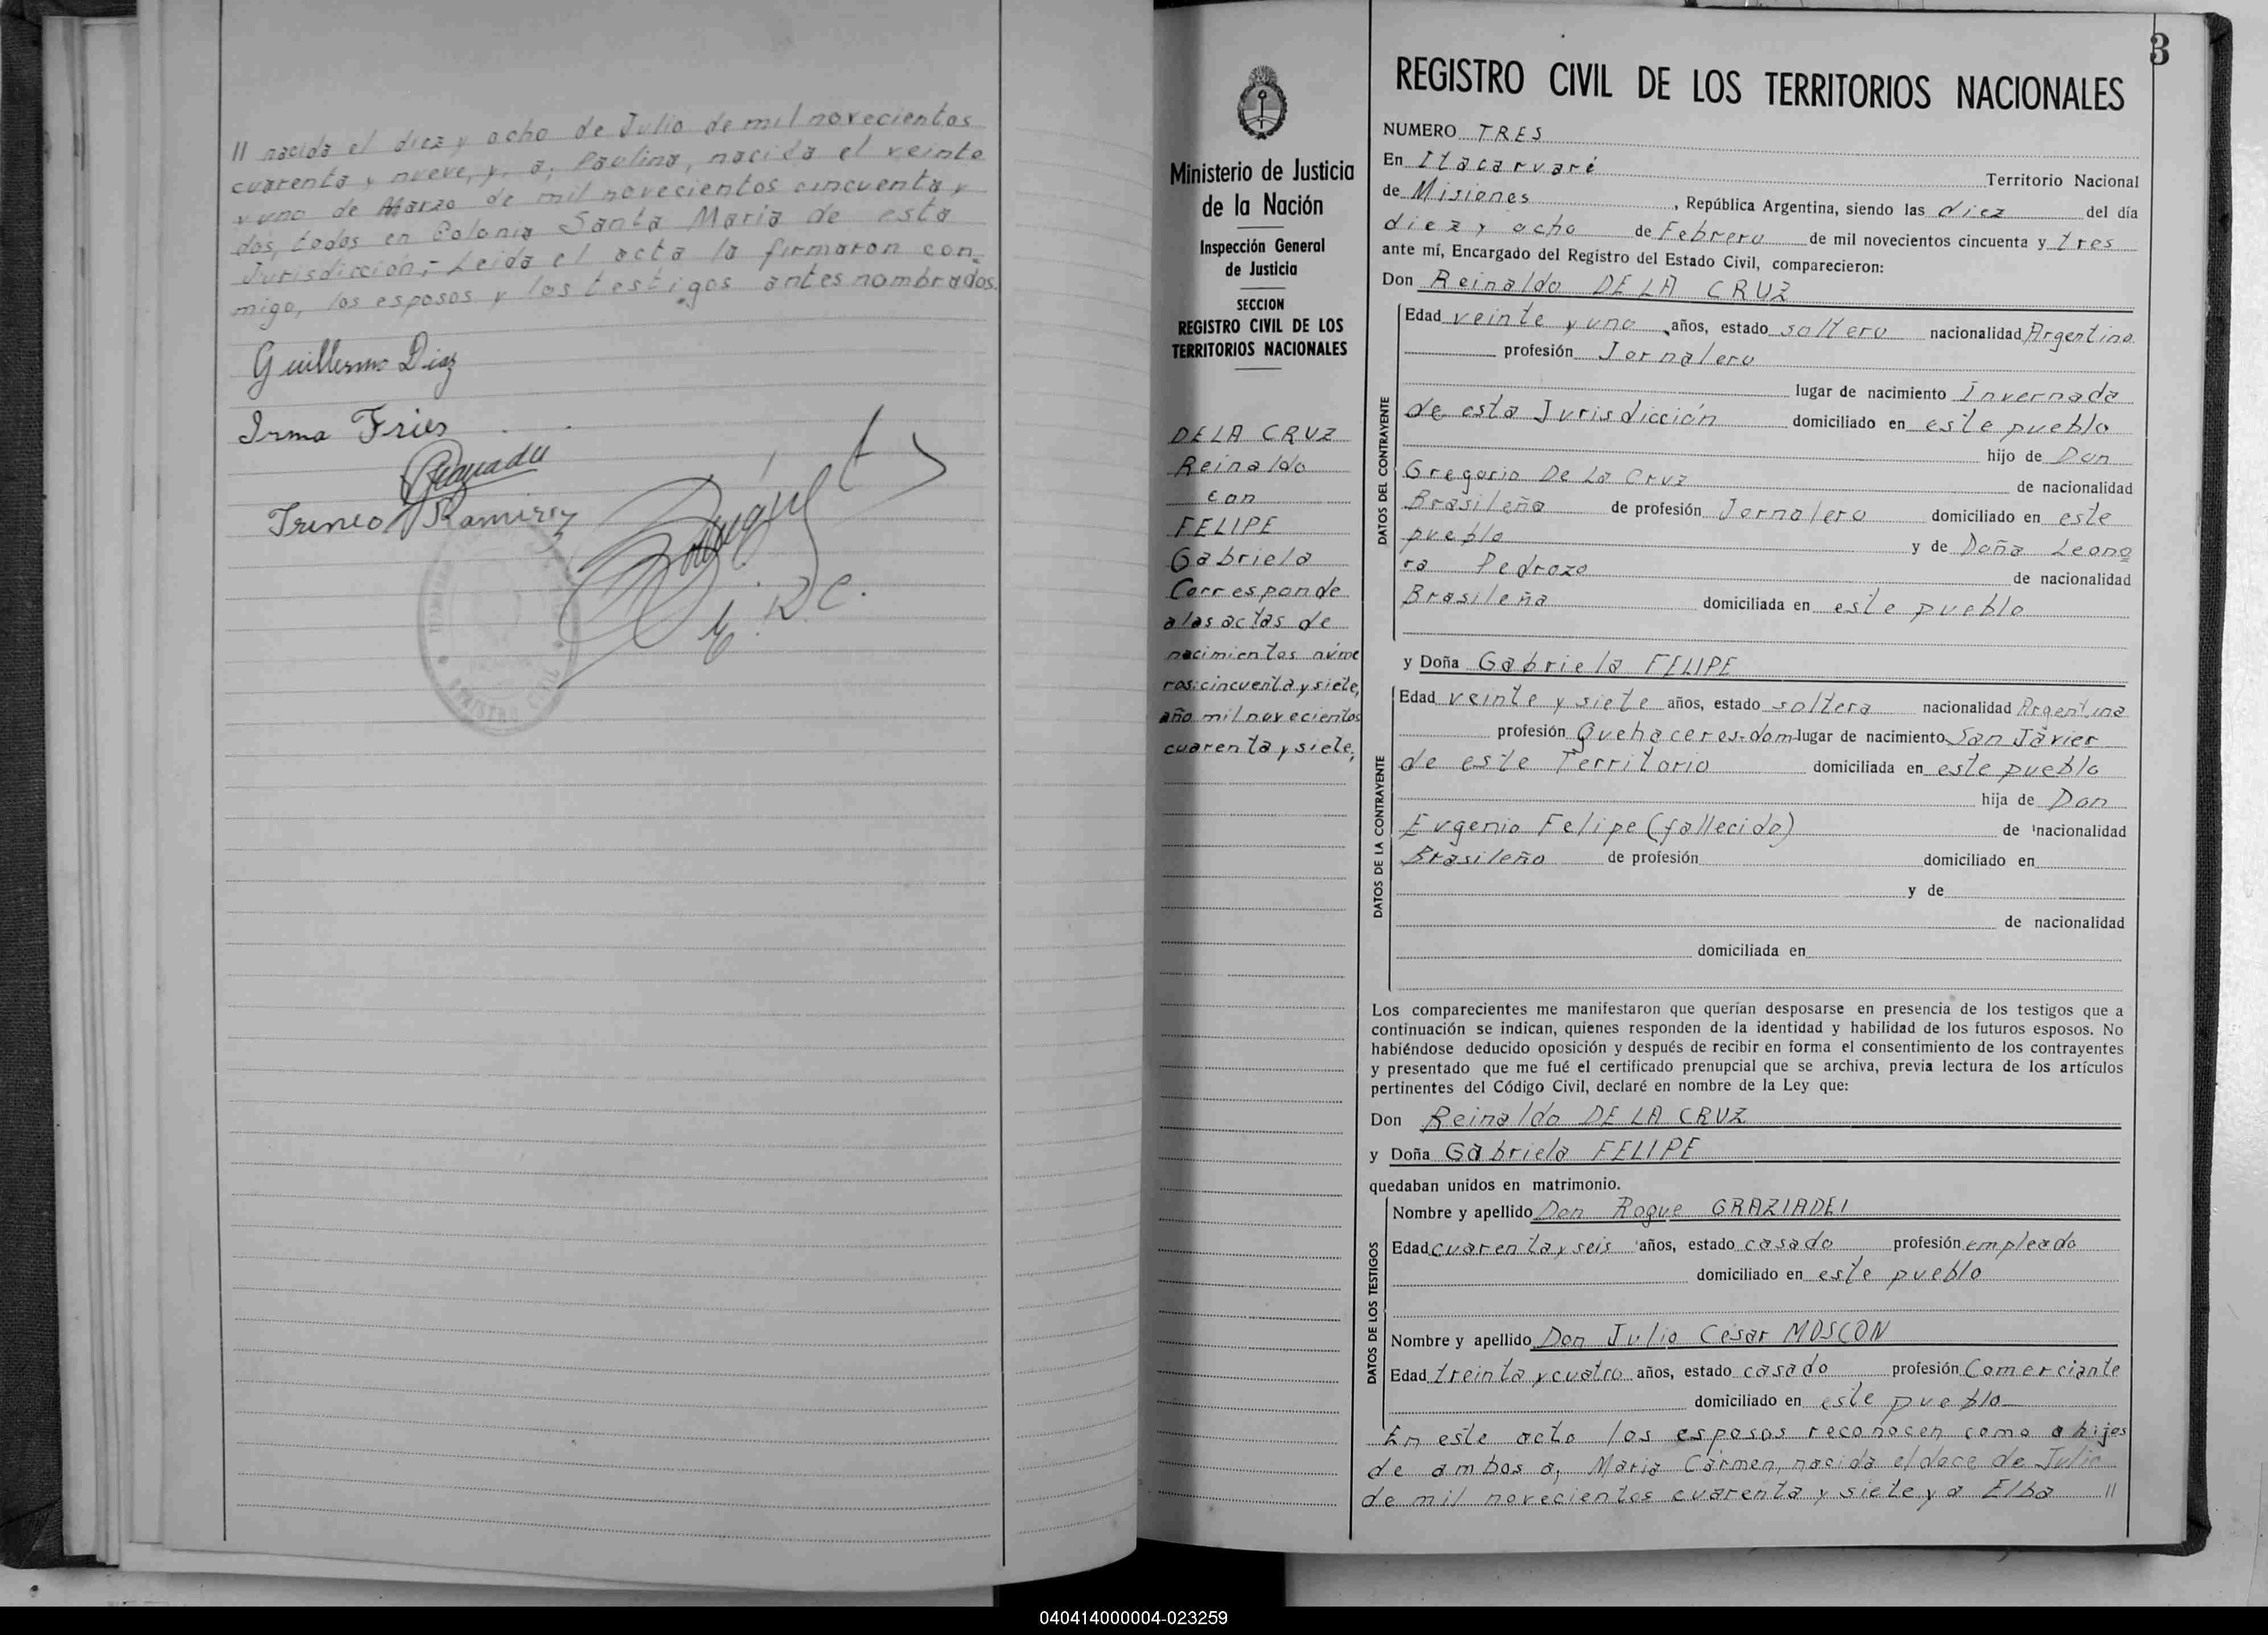 II nacida el diez y ocho de Julio de mil novecientos
cuarenta y nueve, y, a, Paulina, nacida el veinte
y uno de Marzo de mil novecientos cincuenta y
dos, todos en Colonia Santa Maria de esta
Jurisdicción,- Leida el acta la firmaron con-
migo, los esposos y los testigos antes nombrados.
Guillermo Diaz
Irma Fries
Irineo Ramirez
3
REGISTRO CIVIL DE LOS TERRITORIOS NACIONALES
Ministerio de Justicia
de la Nación
Inspección General
de Justicia
SECCION
REGISTRO CIVIL DE LOS
TERRITORIOS NACIONALES
DE LA CRUZ
Reinaldo
con
FELIPE
Gabriela
Corresponde
a las actas de
nacimientos núme
ros: cincuenta y siete,
año mil novecientos
cuarenta y siete,
NUMERO TRES
En Itacaruaré Territorio Nacional
de Misiones, República Argentina, siendo las diez del día
diez y ocho de Febrero de mil novecientos cincuenta y tres
ante mí, Encargado del Registro del Estado Civil, comparecieron:
Don Reinaldo DE LA CRUZ
DATOS DEL CONTRAYENTE
Edad veinte y uno años, estado soltero nacionalidad Argentina
profesión Jornalero
lugar de nacimiento Invernada
de esta Jurisdicción domiciliado en este pueblo
hijo de Don
Gregorio De La Cruz de nacionalidad
Brasileña de profesión Jornalero domiciliado en este
pueblo y de Doña Leono
ra Pedrozo de nacionalidad
Brasileña domiciliada en este pueblo
y Doña Gabriela FELIPE
DATOS DE LA CONTRAYENTE
Edad veinte y siete años, estado soltera nacionalidad Argentina
profesión Quehaceres-dom lugar de nacimiento San Javier
de este Territorio domiciliada en este pueblo
hija de Don
Eugenio Felipe (fallecido) de nacionalidad
Brasileño de profesión domiciliado en
y de
de nacionalidad
domiciliada en
Los comparecientes me manifestaron que querían desposarse en presencia de los testigos que a
continuación se indican, quienes responden de la identidad y habilidad de los futuros esposos. No
habiéndose deducido oposición y después de recibir en forma el consentimiento de los contrayentes
y presentado que me fué el certificado prenupcial que se archiva, previa lectura de los artículos
pertinentes del Código Civil, declaré en nombre de la Ley que:
Don Reinaldo DE LA CRUZ
y Doña Gabriela FELIPE
quedaban unidos en matrimonio.
DATOS DE LOS TESTIGOS
Nombre y apellido Don Roque GRAZIADEI
Edad cuarenta y seis años, estado casado profesión empleado
domiciliado en este pueblo
Nombre y apellido Don Julio César MOSCON
Edad treinta y cuatro años, estado casado profesión Comerciante
domiciliado en este pueblo
En este acto los esposos reconocen como a hijos
de ambos a, Maria Carmen, nacida el doce de Julio
de mil novecientos cuarenta y siete y a Elba II
040414000004-023259